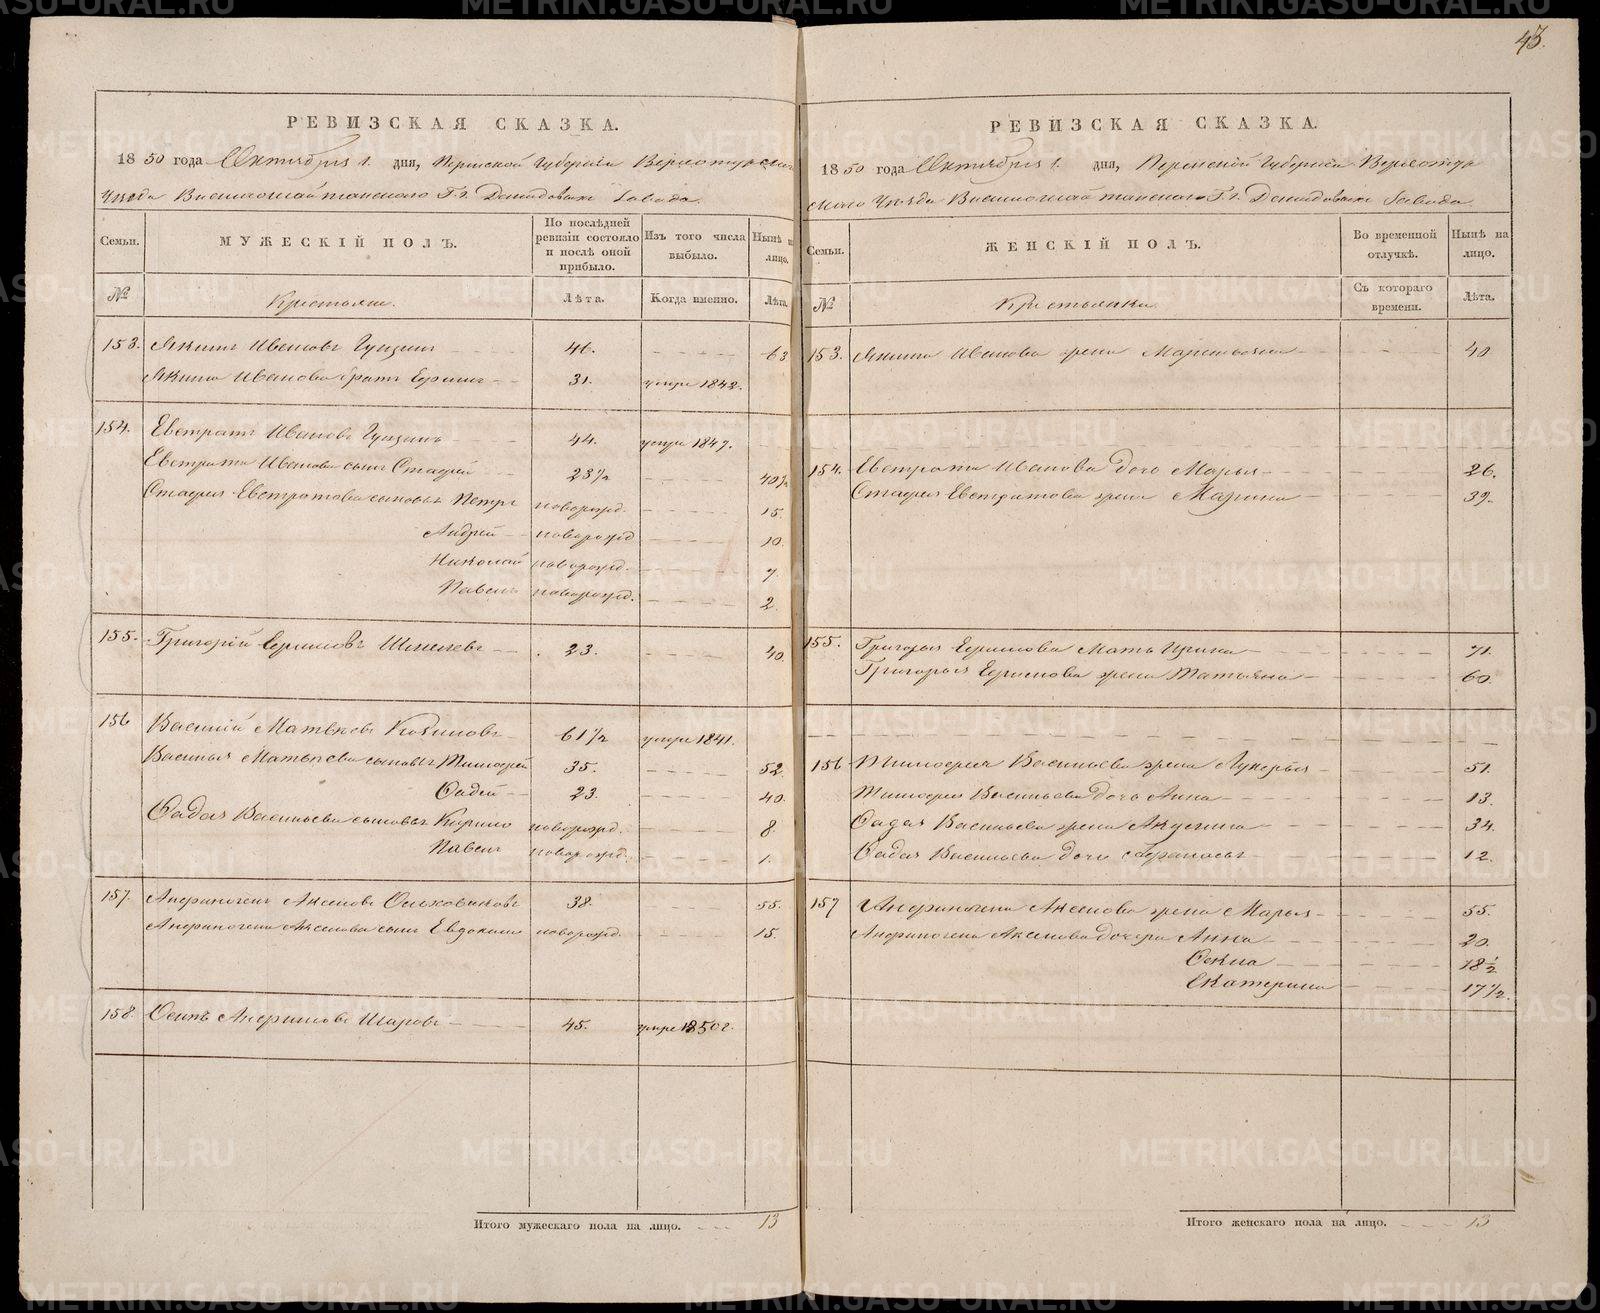 43.
РЕВИЗСКАЯ СКАЗКА.
1850 года Октября 1. дня, Пермской Губернiи Верхотурскаго
Уѣзда Висимошайтанскаго Г.г. Демидовыхъ Завода.
Семьи.
МУЖЕСКІЙ ПОЛЪ.
По послѣдней ревизіи состояло и послѣ оной прибыло.
Изъ того числа выбыло.
Нынѣ на лицо.
№
Крестьяне.
Лѣта.
Когда именно.
Лѣта.
153. Якимъ Ивановъ 46. 63
Якима Иванова братъ 31. умре 1842.
154. Евстратъ Ивановъ 44. умре 1847.
Евстрата Иванова сынъ 23½ 40½
Евстратова сыновья Петръ новорожд. 15.
Андрей новорожд 10.
Николай новорожд. 7.
Павелъ новорожд. 2.
155. Григорій 23. 40.
156 Василій Матвѣевъ 61½ умре 1841.
Василья Матвѣева сыновья Тимофей 35. 52.
Фадей 23. 40.
Фадея Васильева сыновья Кирило новорожд. 8.
Павелъ новорожд. 1.
157. Аксеновъ Ольховиковъ 38. 55.
Аксенова сынъ Евдокимъ новорожд. 15.
158. Осипъ Шаровъ 45. умре 1850 г.
Итого мужескаго пола на лицо. 13
РЕВИЗСКАЯ СКАЗКА.
1850 года Октября 1. дня, Пермской Губернiи Верхотур
скаго Уѣзда Висимошайтанскаго Г.г. Демидовыхъ Завода.
Семьи.
ЖЕНСКІЙ ПОЛЪ.
Во временной отлучкѣ.
Нынѣ на лицо.
№
Крестьянки.
Съ котораго времени.
Лѣта.
153. Якима Иванова жена 40
154. Евстрата Иванова дочь Марья 26.
Евстратова жена Марина 39.
155. Григорья мать Ирина 71.
Григорья жена Татьяна 60.
156 Тимофея Васильева жена Лукерья 51.
Тимофея Васильева дочь Анна 13.
Фадея Васильева жена Акулина 34.
Фадея Васильева дочь 12.
157 Аксенова жена Марья 55.
Аксенова дочери Анна 20.
18½
Екатерина 17½.
Итого женскаго пола на лицо. 13
METRIKI.GASO-URAL.RU